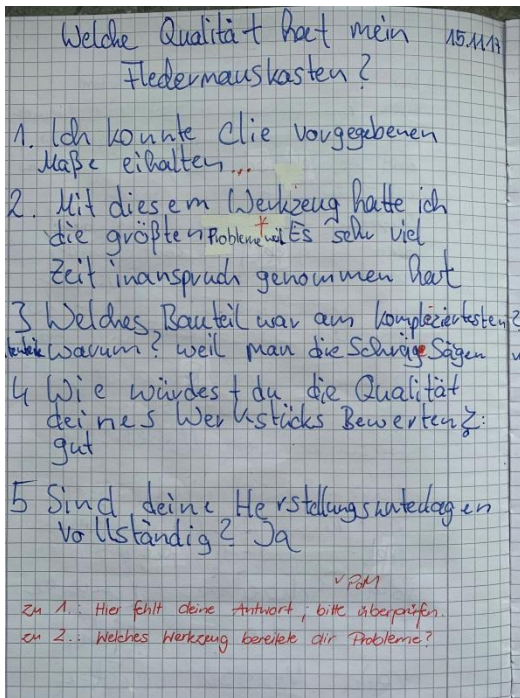 Welche Qualität hat mein 15.11.17
Fledermauskasten?
1. Ich konnte die vorgegebenen
Maße eihalten...
2. Mit diesem Werkzeug hatte ich
die größten Probleme weil Es sehr viel
Zeit inanspruch genommen hat
3 Welches Bauteil war am kompleziertesten?
Warum? weil man die Schräge Sägen
4 Wie würdest du die Qualität
deines Werkstücks Bewerten?:
gut
5 Sind deine Herstellungsunterlagen
vollständig? Ja
zu 1.: Hier fehlt deine Antwort, bitte überprüfen.
zu 2.: Welches Werkzeug bereitete dir Probleme?